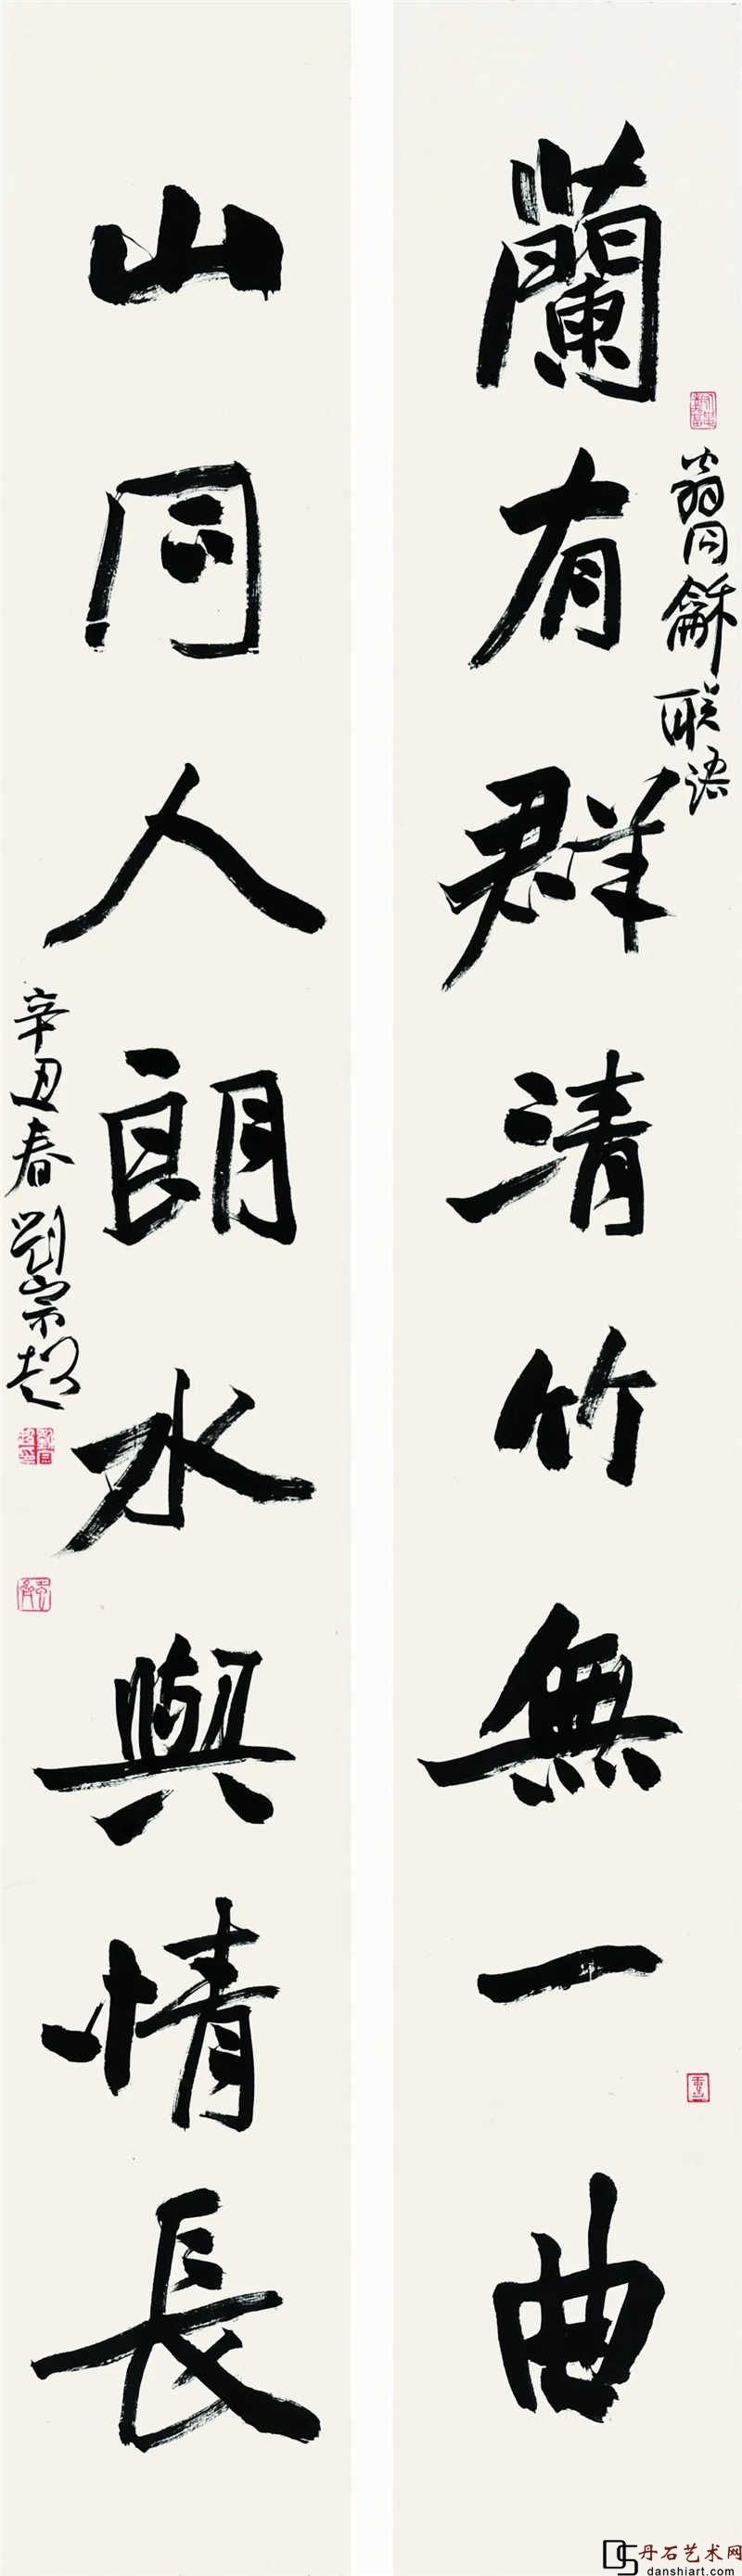 蘭有群清竹無一曲
翁同龢联语
山同人朗水與情長
辛丑春劉宗超
丹石艺术网
danshiart.com